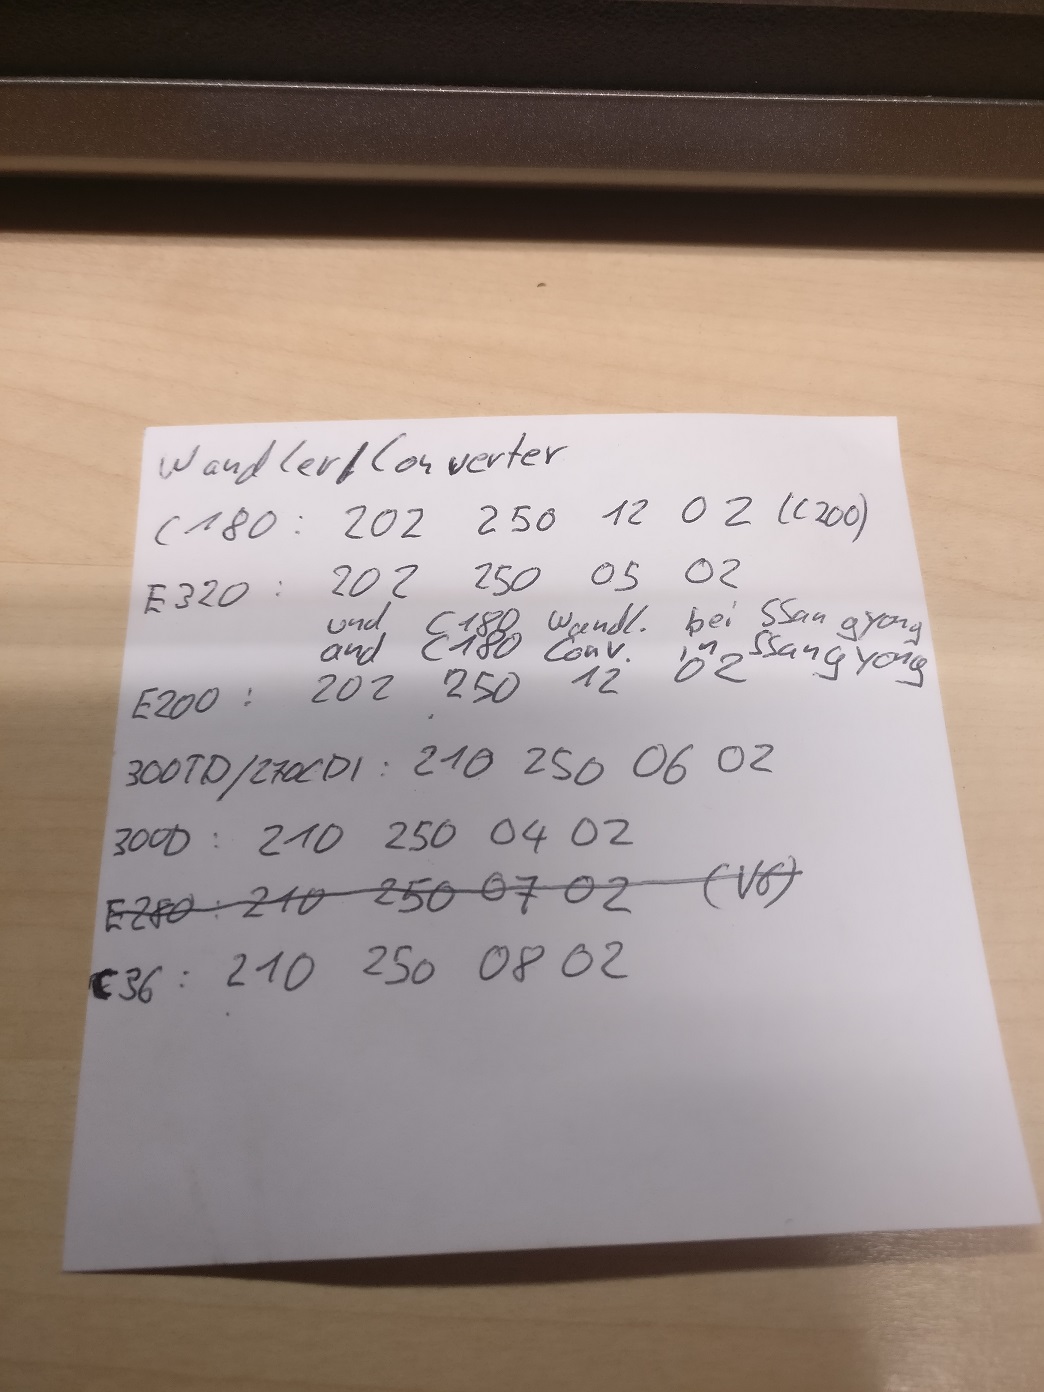 Wandler/Converter
C180: 202 250 12 02 (C200)
E320: 202 250 05 02
und C180 Wandl. bei SSangyong
and C180 Conv. in SSangyong
E200: 202 250 12 02
300TD/270CDI: 210 250 06 02
300D: 210 250 04 02
E280: 210 250 07 02 (V6)
C36: 210 250 08 02